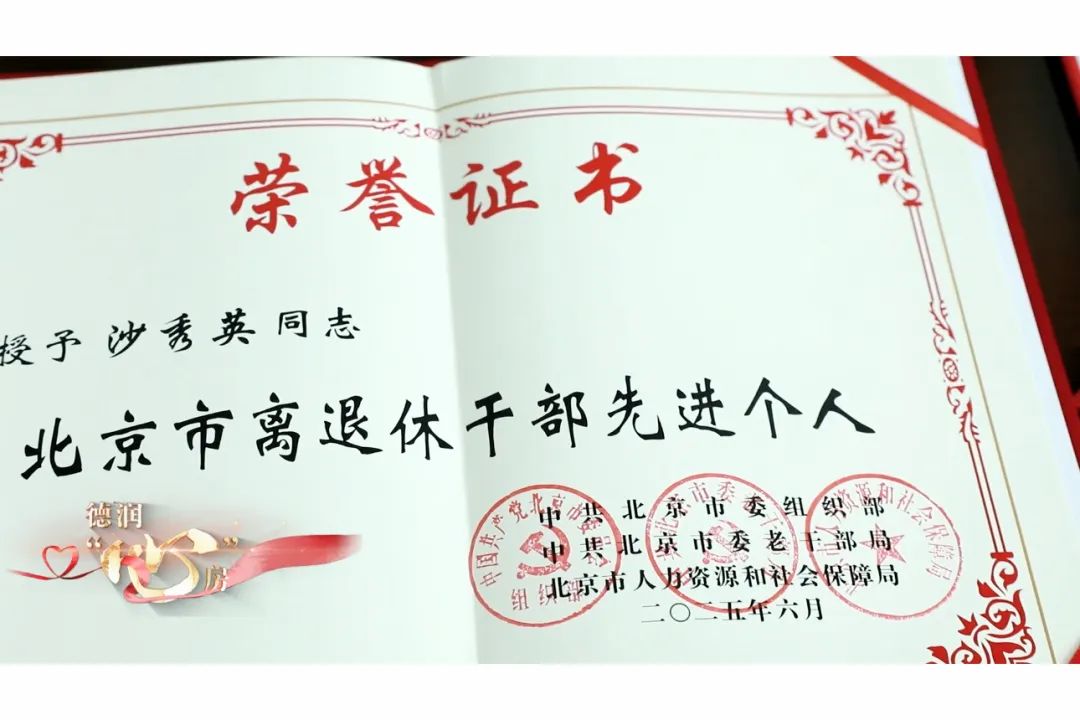 荣誉证书
授予沙秀英同志
北京市离退休干部先进个人
中共北京市委组织部
中共北京市委老干部局
北京市人力资源和社会保障局
二〇二五年六月
德润
“心”房